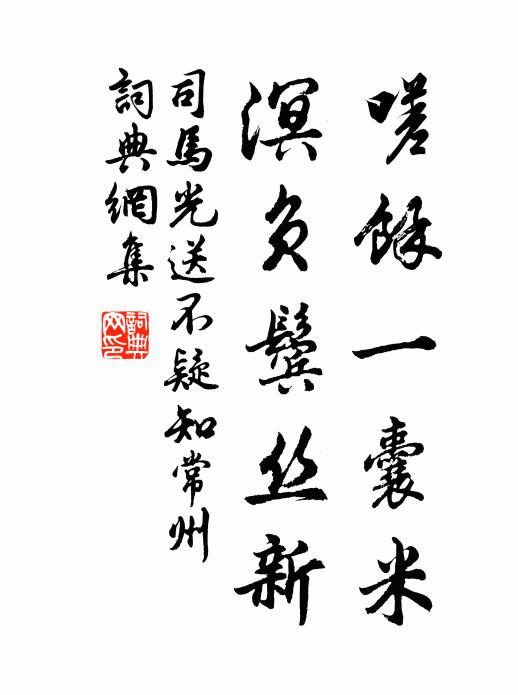 嗟餘一囊米
溟负鬓丝新
司馬光送不疑知常州
詞典網集
詞典网印